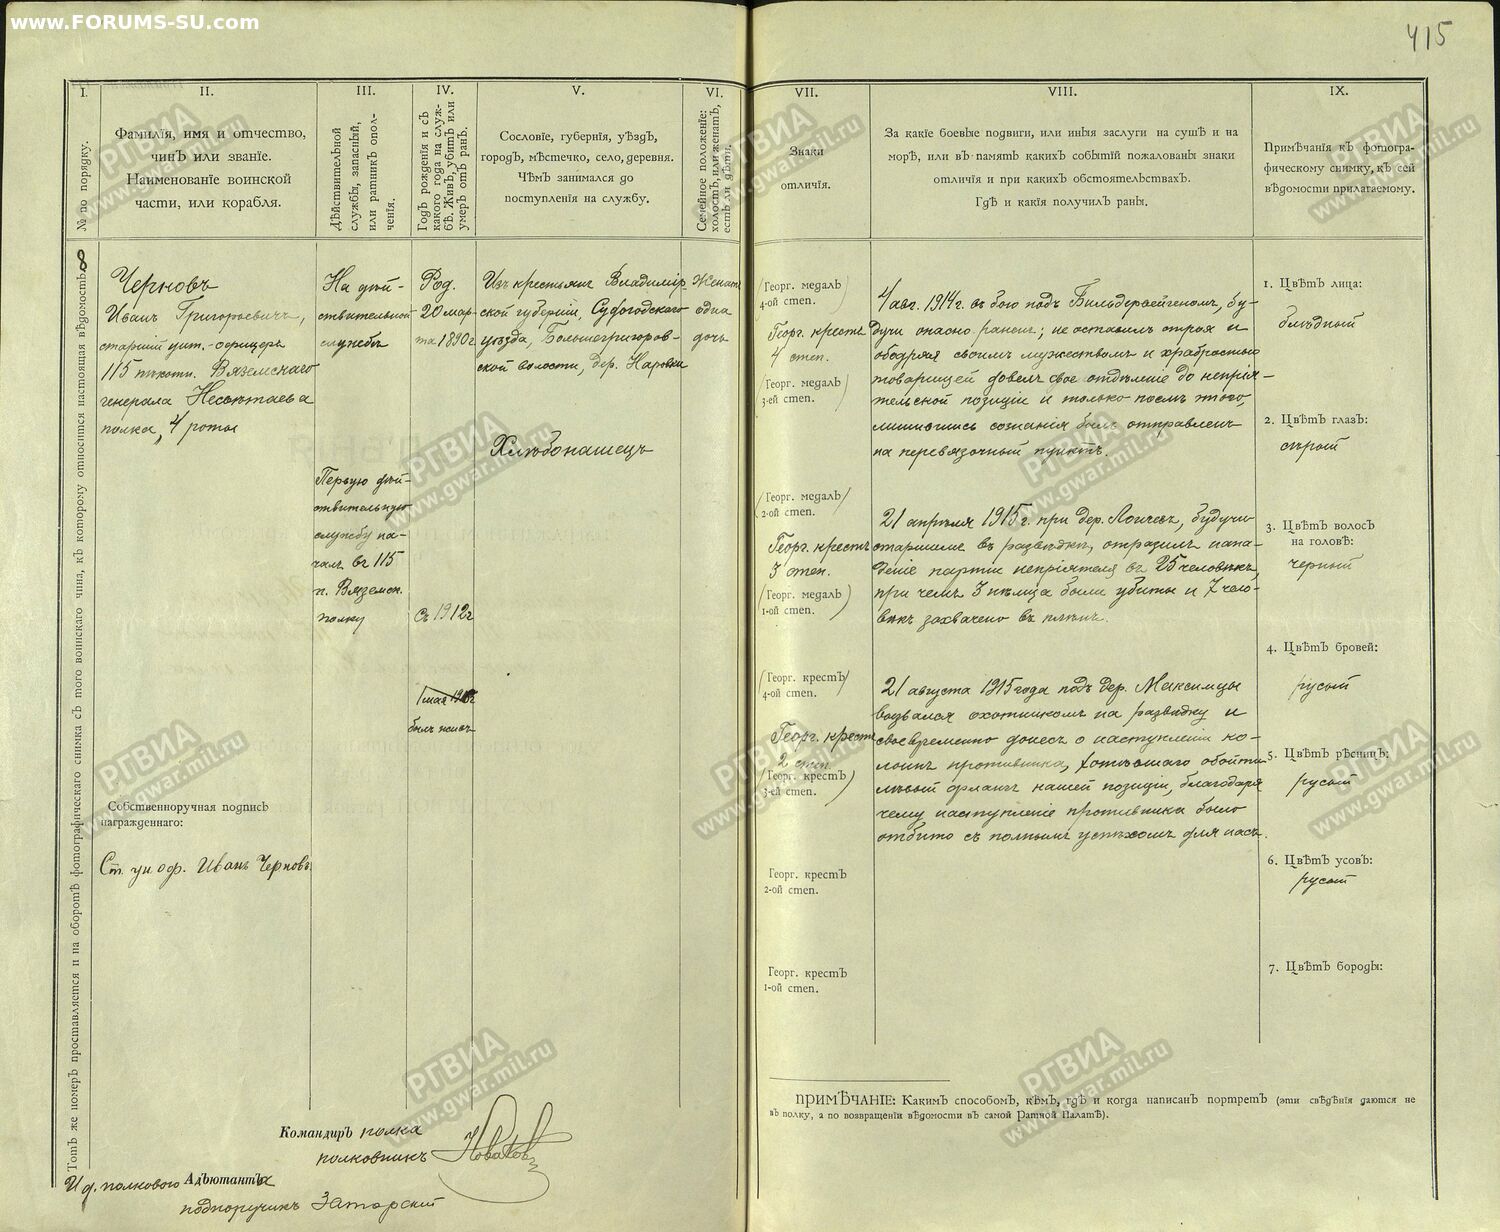 www.FORUMS-SU.com
415
I.
№ по порядку.
II.
Фамилія, имя и отчество,
чинъ или званіе.
Наименованіе воинской
части, или корабля.
III.
Дѣйствительной
службы, запасный,
или ратникъ опол-
ченія.
IV.
Годъ рожденія и съ
какого года на служ-
бѣ. Живъ, убитъ или
умеръ отъ ранъ.
V.
Сословіе, губернія, уѣздъ,
городъ, мѣстечко, село, деревня.
Чѣмъ занимался до
поступленія на службу.
VI.
Семейное положеніе:
холостъ, или женатъ,
есть ли дѣти.
VII.
Знаки
отличія.
VIII.
За какіе боевые подвиги, или иныя заслуги на сушѣ и на
морѣ, или въ память какихъ событій пожалованы знаки
отличія и при какихъ обстоятельствахъ.
Гдѣ и какія получилъ раны.
IX.
Примѣчанія къ фотогра-
фическому снимку, къ сей
вѣдомости прилагаемому.
Тотъ же номеръ проставляется и на оборотѣ фотографическаго снимка съ того воинскаго чина, къ которому относится настоящая вѣдомость.
8
Черновъ
Иванъ Григорьевичъ,
старшій унт.-офицеръ
115 пѣхотн. Вяземскаго
генерала Несвѣтаева
полка, 4 роты
Собственноручная подпись
награжденнаго:
Ст. ун оф. Иванъ Черновъ
На дѣй-
ствительной
службѣ
Первую дѣй-
ствительную
службу на-
чалъ въ 115
п. Вяземск.
полку
Род.
20 мар-
та 1890г
Съ 1912г
1 мая
былъ живъ
Изъ крестьянъ Владимір-
ской губерніи, Судогодскаго
уѣзда, Большегригоров-
ской волости, дер.
Хлѣбопашецъ
Женатъ
одна
дочь
Георг. медаль
4-ой степ.
Георг. крестъ
4 степ.
Георг. медаль
3-ей степ.
Георг. медаль
2-ой степ.
Георг. крестъ
3 степ.
Георг. медаль
1-ой степ.
Георг. крестъ
4-ой степ.
Георг. крестъ
2 степ.
Георг. крестъ
3-ей степ.
Георг. крестъ
2-ой степ.
Георг. крестъ
1-ой степ.
4 авг. 1914г. въ бою подъ Бильдервейгеномъ, бу-
дучи опасно раненъ; не оставилъ строя и
ободряя своимъ мужествомъ и храбростью
товарищей довелъ свое отдѣленіе до непрія-
тельской позиціи и только послѣ этого,
лишившись сознанія былъ отправленъ
на перевязочный пунктъ.
21 апрѣля 1915г. при дер. будучи
старшимъ въ развѣдкѣ, отразилъ напа-
деніе партіи непріятеля въ 25 человѣкъ,
при чемъ 3 нѣмца были убиты и 7 чело-
вѣкъ захвачено въ плѣнъ.
21 августа 1915 года подъ дер. Максимцы
вызвался охотникомъ на развѣдку и
своевременно донесъ о наступленіи ко-
лоннъ противника, хотѣвшаго обойти
лѣвый флангъ нашей позиціи, благодаря
чему наступленіе противника было
отбито съ полнымъ успѣхомъ для насъ.
1. Цвѣтъ лица:
блѣдный
2. Цвѣтъ глазъ:
сѣрый
3. Цвѣтъ волосъ
на головѣ:
черный
4. Цвѣтъ бровей:
русый
5. Цвѣтъ рѣсницъ:
русый
6. Цвѣтъ усовъ:
русый
7. Цвѣтъ бороды:
ПРИМѢЧАНІЕ: Какимъ способомъ, кѣмъ, гдѣ и когда написанъ портретъ (эти свѣдѣнія даются не
въ полку, а по возвращеніи вѣдомости въ самой Ратной Палатѣ).
Командиръ полка
полковникъ Новаковъ
И д. полкового Адъютанта
подпоручикъ Заторскій
РГВИА
www.gwar.mil.ru